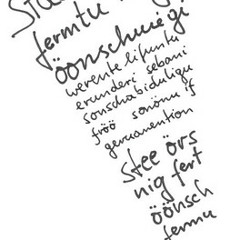 fermtu
öönschwegi
werente lifuntu
erunderi sebani
sonschabiduligu
fröö sonönu if
germanention
stee örs
nig fert
öönsch
fermu